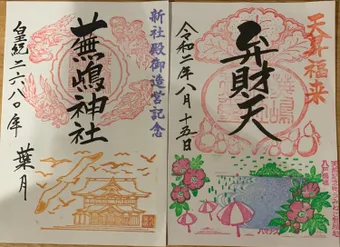 天算福来
弁財天
令和二年八月十五日
新社殿御造営記念
蕪嶋神社
皇紀二六八〇年
葉月